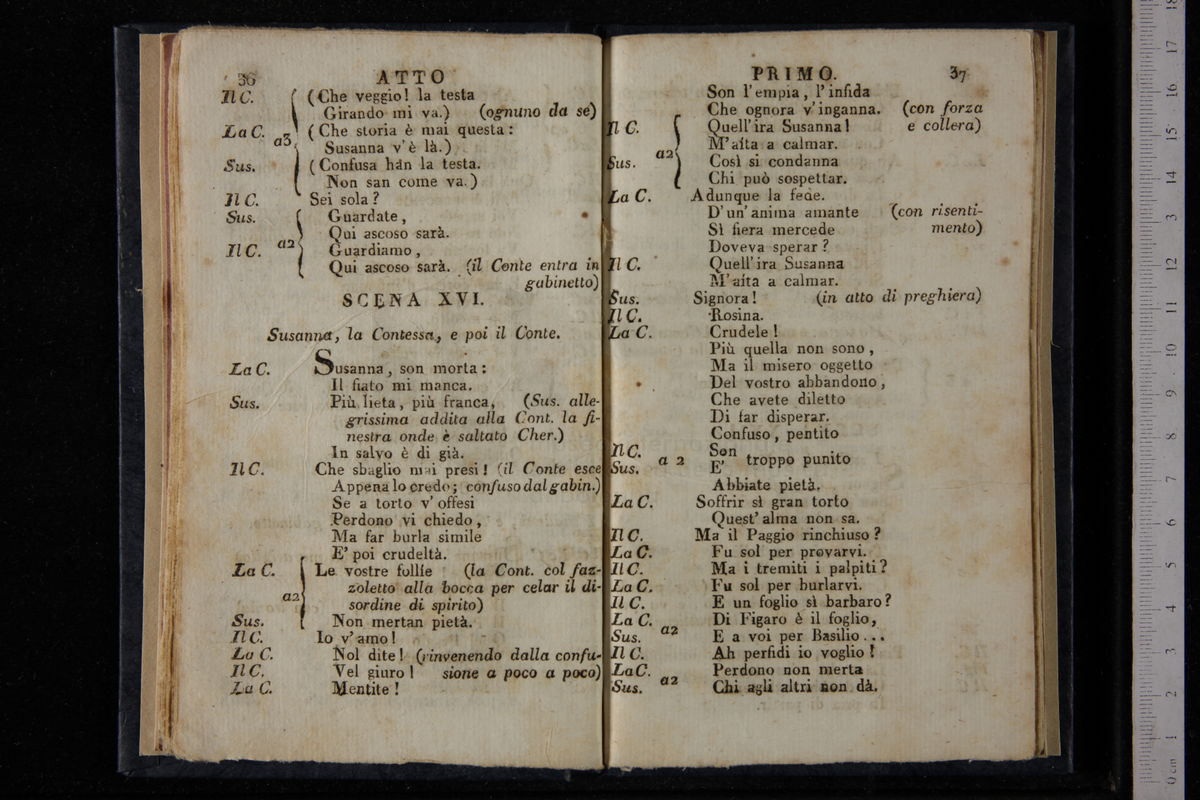 36 ATTO
Il C. (Che veggio! la testa
Girando mi va.) (ognuno da se)
La C. (Che storia è mai questa:
a3
Susanna v'è là.)
Sus. (Confusa han la testa.
Non san come va.)
Il C. Sei sola?
Sus. Guardate,
Qui ascoso sarà.
Il C. a2 Guardiamo,
Qui ascoso sarà. (il Conte entra in
gabinetto)
SCENA XVI.
Susanna, la Contessa, e poi il Conte.
La C. Susanna, son morta:
Il fiato mi manca.
Sus. Più lieta, più franca, (Sus. alle-
grissima addita alla Cont. la fi-
nestra onde è saltato Cher.)
In salvo è di già.
Il C. Che sbaglio mai presi! (il Conte esce
Appena lo credo; confuso dal gabin.)
Se a torto v'offesi
Perdono vi chiedo,
Ma far burla simile
E' poi crudeltà.
La C. Le vostre follíe (la Cont. col faz-
zoletto alla bocca per celar il di-
a2
sordine di spirito)
Sus. Non mertan pietà.
Il C. Io v'amo!
La C. Nol dite! (rinvenendo dalla confu-
Il C. Vel giuro! sione a poco a poco)
La C. Mentite!
PRIMO. 37
Son l'empia, l'infida
Che ognora v'inganna. (con forza
Il C. Quell'ira Susanna! e collera)
M'aíta a calmar.
a2
Sus. Così si condanna
Chi può sospettar.
La C. Adunque la fede.
D'un'anima amante (con risenti-
Sì fiera mercede mento)
Doveva sperar?
Il C. Quell'ira Susanna
M'aíta a calmar.
Sus. Signora! (in atto di preghiera)
Il C. Rosina.
La C. Crudele!
Più quella non sono,
Ma il misero oggetto
Del vostro abbandono,
Che avete diletto
Di far disperar.
Confuso, pentito
Il C. Son
a 2 troppo punito
Sus. E'
Abbiate pietà.
La C. Soffrir sì gran torto
Quest'alma non sa.
Il C. Ma il Paggio rinchiuso?
La C. Fu sol per provarvi.
Il C. Ma i tremiti i palpiti?
La C. Fu sol per burlarvi.
Il C. E un foglio sì barbaro?
La C. Di Figaro è il foglio,
a2
Sus. E a voi per Basilio...
Il C. Ah perfidi io voglio!
La C. Perdono non merta
a2
Sus. Chi agli altri non dà.
0 cm 1 2 3 4 5 6 7 8 9 10 11 12 13 14 15 16 17 18